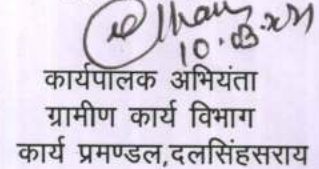 10.03.21
कार्यपालक अभियंता
ग्रामीण कार्य विभाग
कार्य प्रमण्डल,दलसिंहसराय